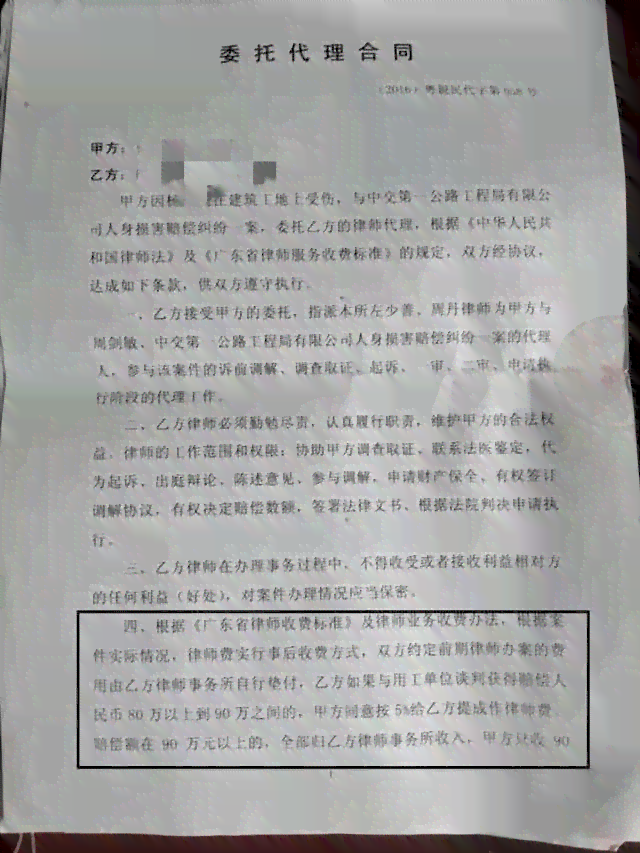 委托代理合同
（2016）粤 民代字第 号
甲方：
乙方：
甲方因杨 在建筑工地上受伤，与中交第一公路工程局有限公
司人身损害赔偿纠纷一案，委托乙方的律师代理，根据《中华人民共
和国律师法》及《广东省律师服务收费标准》的规定，双方经协议，
达成如下条款，供双方遵守执行。
一、乙方接受甲方的委托，指派本所左少善、周丹律师为甲方与
周剑敏、中交第一公路工程局有限公司人身损害赔偿纠纷一案的代理
人，参与该案件的诉前调解、调查取证、起诉、一审、二审、申请执
行阶段的代理工作。
二、乙方律师必须勤勉尽责，认真履行职责，维护甲方的合法权
益。律师的工作范围和权限：协助甲方调查取证、联系法医鉴定，代
为起诉、出庭辩论、陈述意见、参与调解，申请财产保全、有权签订
调解协议，有权决定赔偿数额，签署法律文书、根据法院判决申请执
行。
三、乙方律师在办理事务过程中，不得收受或者接收利益相对方
的任何利益（好处），对案件办理情况应当保密。
四、根据《广东省律师收费标准》及律师业务收费办法，根据案
件实际情况，律师费实行事后收费方式，双方约定前期律师办案的费
用由乙方律师事务所自行垫付，乙方如果与用工单位谈判获得赔偿人
民币 80 万以上到 90 万之间的，甲方同意按 5%给乙方提成作律师费
赔偿额在 90 万元以上的，全部归乙方律师事务所收入，甲方只收 90
1